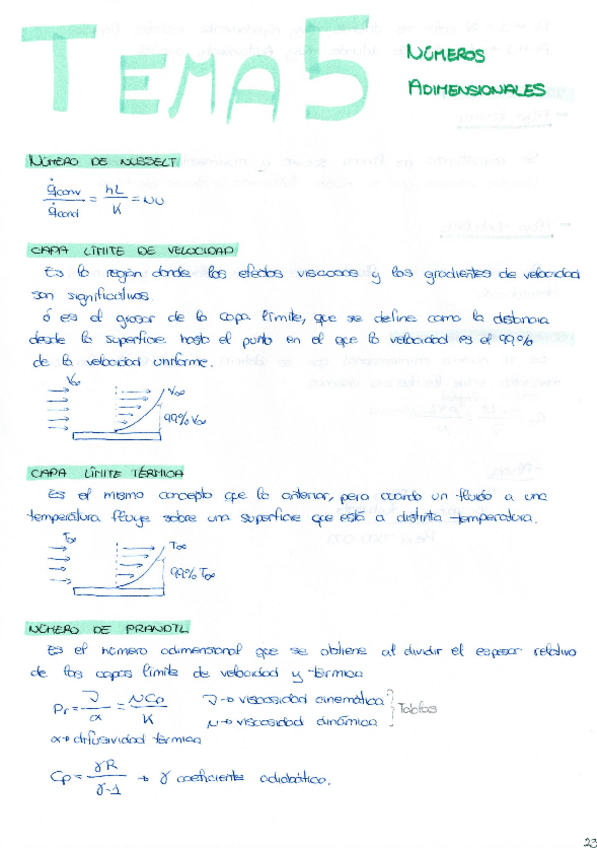 TEMA 5
NÚMEROS
ADIMENSIONALES
NÚMERO DE NUSSELT
q̇conv / q̇cond = hL / K = NU
CAPA LÍMITE DE VELOCIDAD
Es la región donde los efectos viscosos y los gradientes de velocidad
son significativos.
δ es el grosor de la capa límite, que se define como la distancia
desde la superficie hasta el punto en el que la velocidad es el 99%
de la velocidad uniforme.
V∞
V∞
99% V∞
CAPA LÍMITE TÉRMICA
Es el mismo concepto que la anterior, pero cuando un fluido a una
temperatura fluye sobre una superficie que está a distinta temperatura.
T∞
T∞
99% T∞
NÚMERO DE PRANDTL
Es el número adimensional que se obtiene al dividir el espesor relativo
de las capas límite de velocidad y térmica
Pr = ν / α = μCp / K
ν → viscosidad cinemática
μ → viscosidad dinámica
Tablas
α → difusividad térmica
Cp = γR / γ-1 → γ coeficiente adiabático.
23